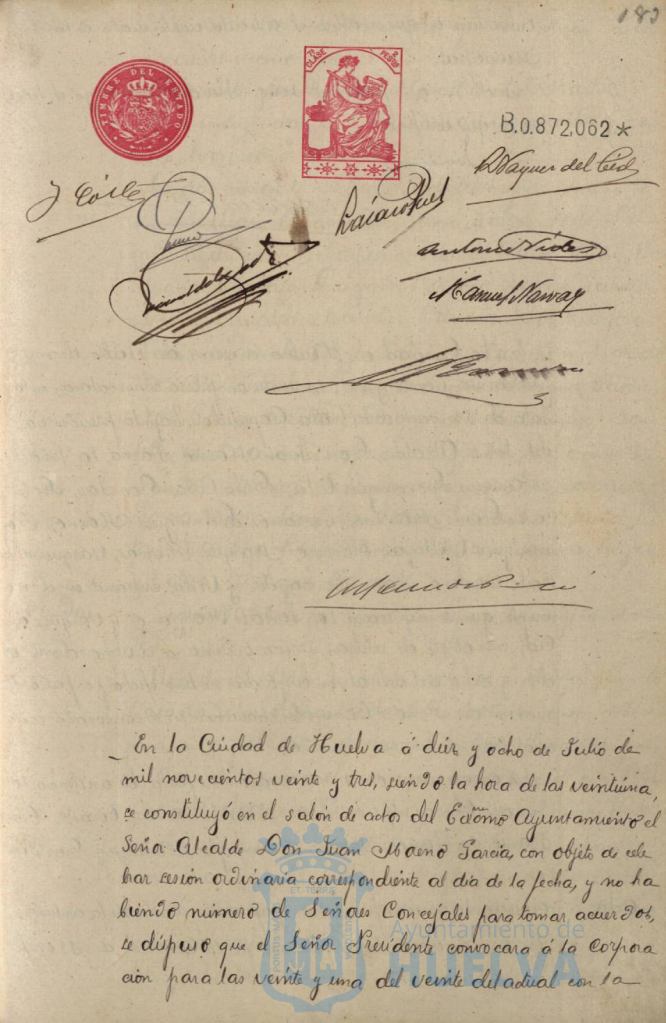 183
TIMBRE DEL ESTADO
7ª CLASE 2 PESETAS
B.0.872,062*
R Vazquez del Cid
Antonio Vides
Manuel Narvaez
En la Ciudad de Huelva á diez y ocho de Julio de
mil novecientos veinte y tres, siendo la hora de las veintiuna,
se constituyó en el salón de actos del Excmo Ayuntamiento el
Señor Alcalde Don Juan Moreno García, con objeto de cele
brar sesión ordinaria correspondiente al dia de la fecha, y no ha
biendo número de Señores Concejales para tomar acuerdos,
se dispuso que el Señor Presidente convocara á la Corpora
ción para las veinte y una del veinte del actual con la
Ayuntamiento de
HUELVA